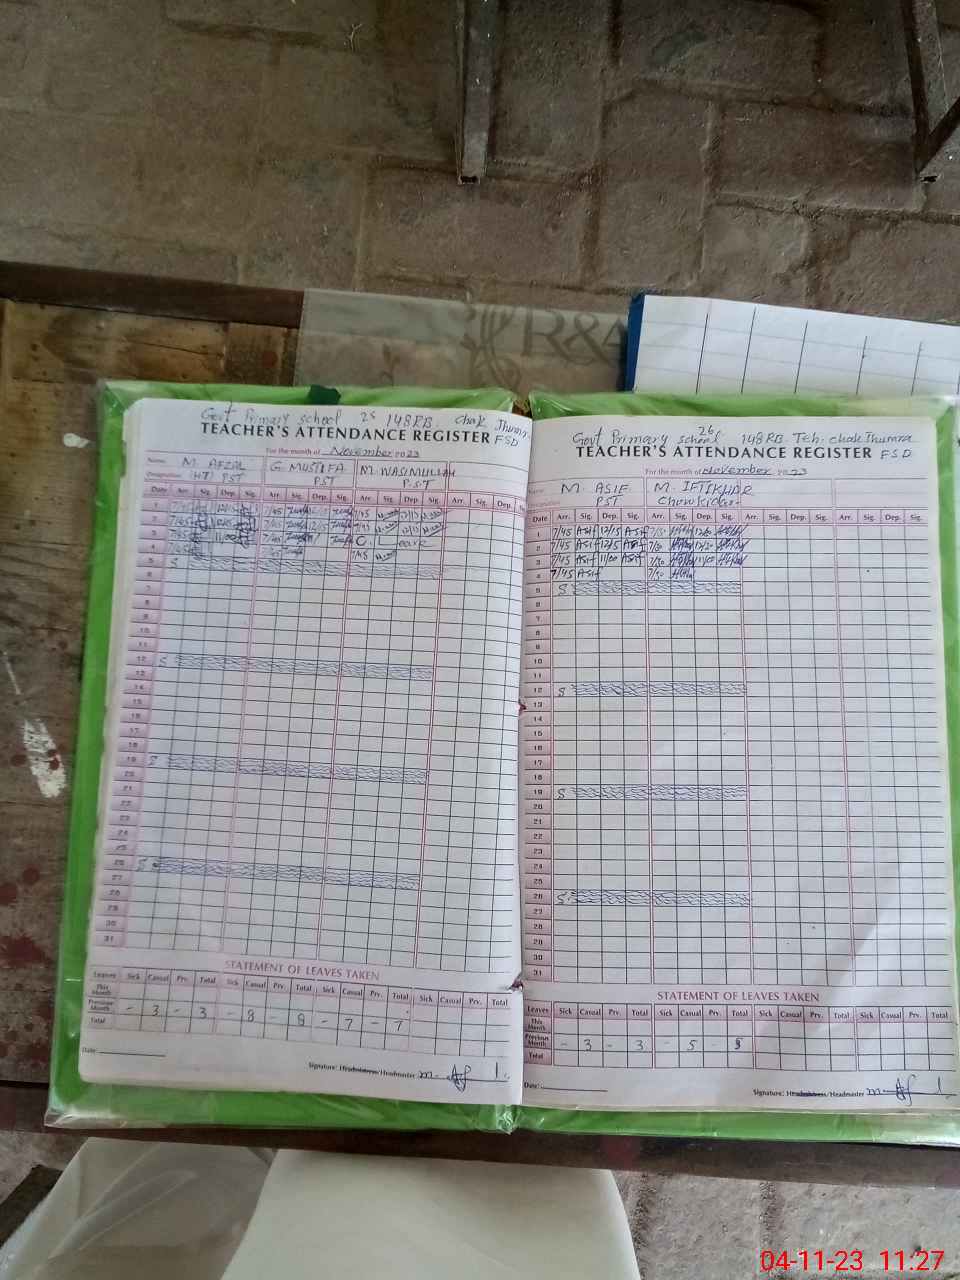 R&A
Govt Primary school 25 148 RB. chak Jhumra
TEACHER'S ATTENDANCE REGISTER FSD
For the month of November 2023
Name M. AFZAL G. MUSTIFA M. WASIMULLAH
Designation (HT) PST PST P.S.T
Date Arr. Sig. Dep. Sig. Arr. Sig. Dep. Sig. Arr. Sig. Dep. Sig. Arr. Sig. Dep. Sig.
1 7/45 12/15 7/45 12/15 7/45 12/15
2 7/45 12/15 7/45 12/15 7/45 12/15
3 7/45 11/00 7/45 C. Leave
4 7/45 7/45 7/45
5 S
6
7
8
9
10
11
12 S
13
14
15
16
17
18
19 S
20
21
22
23
24
25
26 S
27
28
29
30
31
STATEMENT OF LEAVES TAKEN
Leaves Sick Casual Prv. Total Sick Casual Prv. Total Sick Casual Prv. Total Sick Casual Prv. Total
This Month
Previous Month - 3 - 3 - 8 - 8 - 7 - 7
Total
Date:
Signature: Headmistress/Headmaster
Govt Primary school 26 148 RB. Teh. chak Jhumra
TEACHER'S ATTENDANCE REGISTER FSD
For the month of November 2023
Name M. ASIF M. IFTIKHAR
Designation PST Chowkidar
Date Arr. Sig. Dep. Sig. Arr. Sig. Dep. Sig. Arr. Sig. Dep. Sig. Arr. Sig. Dep. Sig.
1 7/45 Asif 12/15 Asif 7/30 12/30
2 7/45 Asif 12/15 Asif 7/30 12/30
3 7/45 Asif 11/00 Asif 7/30 11/00
4 7/45 Asif 7/30
5 S
6
7
8
9
10
11
12 S
13
14
15
16
17
18
19 S
20
21
22
23
24
25
26 S
27
28
29
30
31
STATEMENT OF LEAVES TAKEN
Leaves Sick Casual Prv. Total Sick Casual Prv. Total Sick Casual Prv. Total Sick Casual Prv. Total
This Month
Previous Month - 3 - 3 - 5 - 5
Total
Date:
Signature: Headmistress/Headmaster
04-11-23 11:27